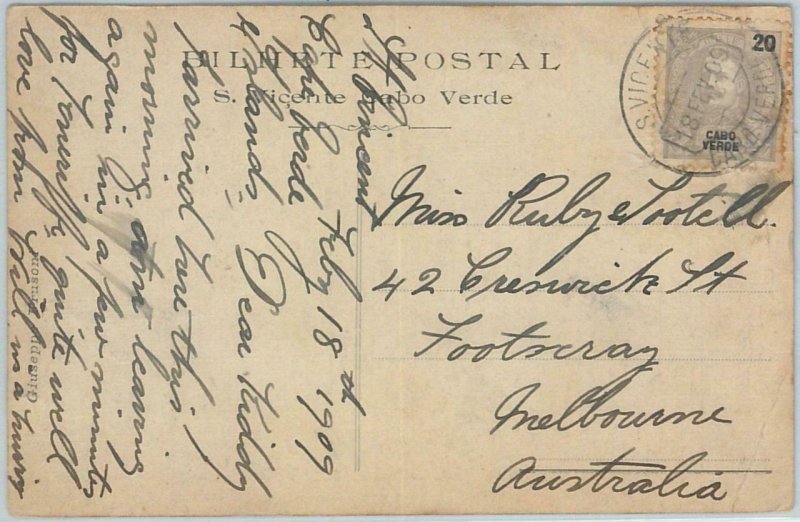 BILHETE POSTAL
S. Vicente Cabo Verde
20
CABO
VERDE
S. VICENTE
18 FEV 09
CABO VERDE
St Vincent
Cape Verde Feby 18th 1909
Islands. Dear Kiddy
Iarrived here this
morning, am leaving
again in a few minutes
for Teneriffe quite well
love from Will in a hurry
Giuseppe Frusoni
Miss Ruby Tootell.
42 Creswick St
Footscray
Melbourne
Australia